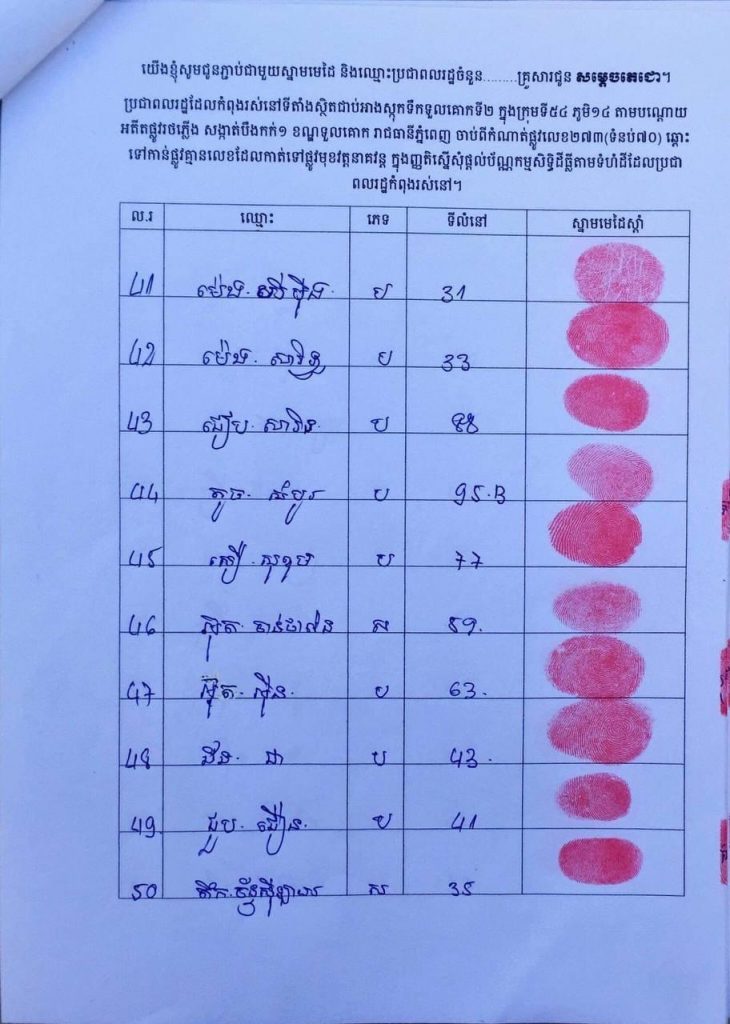 យើងខ្ញុំសូមជូនភ្ជាប់ជាមួយស្នាមមេដៃ និងឈ្មោះប្រជាពលរដ្ឋចំនួន.........គ្រួសារជូន សម្តេចតេជោ។
ប្រជាពលរដ្ឋដែលកំពុងរស់នៅទីតាំងស្ថិតជាប់អាងស្តុកទឹកទួលគោកទី២ ក្នុងក្រុមទី៥៤ ភូមិ១៤ តាមបណ្តោយ
អតីតផ្លូវរថភ្លើង សង្កាត់បឹងកក់១ ខណ្ឌទួលគោក រាជធានីភ្នំពេញ ចាប់ពីកំណាត់ផ្លូវលេខ២៧៣(ទំនប់៧០) ឆ្ពោះ
ទៅកាន់ផ្លូវគ្មានលេខដែលកាត់ទៅផ្លូវមុខវត្តនាគវន្ត ក្នុងញត្តិស្នើសុំផ្តល់ប័ណ្ណកម្មសិទ្ធិដីធ្លីតាមទំហំដីដែលប្រជា
ពលរដ្ឋកំពុងរស់នៅ។
ល.រ ឈ្មោះ ភេទ ទីលំនៅ ស្នាមមេដៃស្តាំ
41 ម៉េង ប 31
42 ម៉េង ប 33
43 ជឿប ប 88
44 តូច សំបូរ ប 95.B
45 សុខុម ប 77
46 ស 59.
47 ប 63.
48 ជា ប 43.
49. ជួប ជឿន. ប 41
50 ស 35